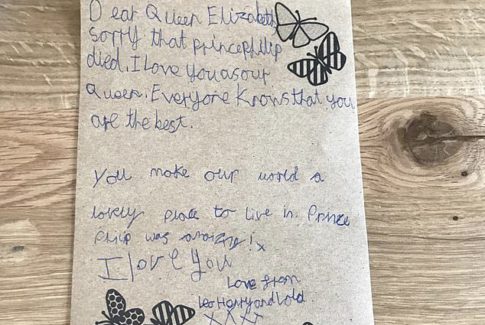 Dear Queen Elizabeth
sorry that princephilip
died. I love you as our
Queen. Everyone knows that you
are the best.
you make our world a
lovely place to live in. Prince
Philip was amazing! x
I love you
Love from
Leo Harry and
XXXX